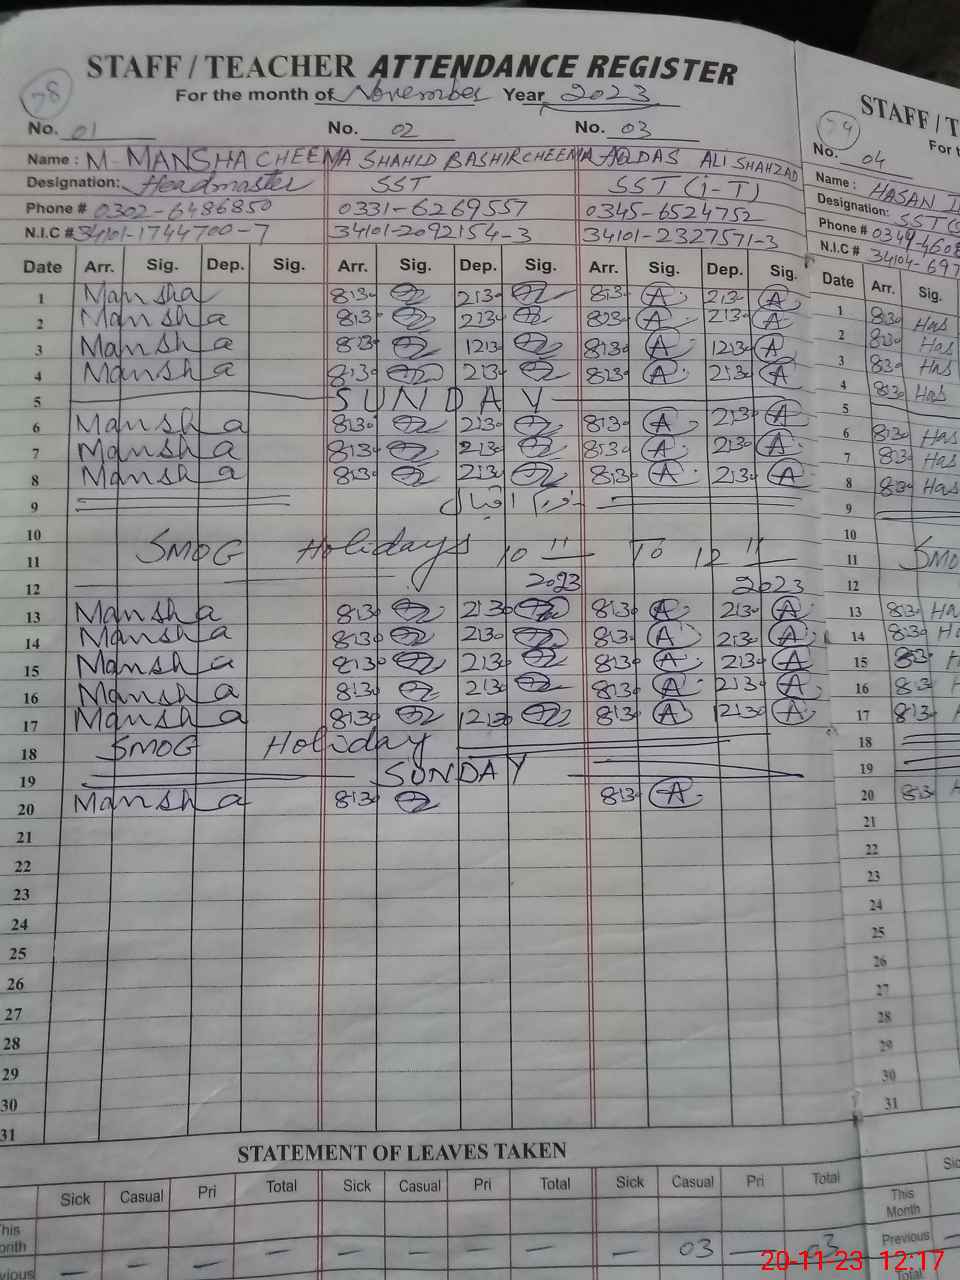 78
STAFF / TEACHER ATTENDANCE REGISTER
For the month of November Year 2023
No. 01 No. 02 No. 03
Name : M. MANSHA CHEEMA SHAHID BASHIR CHEEMA AQDAS ALI SHAHZAD
Designation: Headmaster SST SST (I-T)
Phone # 0302-6486850 0331-6269557 0345-6524752
N.I.C # 34101-1744700-7 34101-2092154-3 34101-2327571-3
Date Arr. Sig. Dep. Sig. Arr. Sig. Dep. Sig. Arr. Sig. Dep. Sig.
1 Mansha 8:30 2:30 8:30 A 2:30 A
2 Mansha 8:30 2:30 8:30 A 2:30 A
3 Mansha 8:30 12:30 8:30 A 12:30 A
4 Mansha 8:30 2:30 8:30 A 2:30 A
5 SUNDAY
6 Mansha 8:30 2:30 8:30 A 2:30 A
7 Mansha 8:30 2:30 8:30 A 2:30 A
8 Mansha 8:30 2:30 8:30 A 2:30 A
9 یوم اقبال
10
11 SMOG Holidays 10 11 To 12 11
12 2023 2023
13 Mansha 8:30 2:30 8:30 A 2:30 A
14 Mansha 8:30 2:30 8:30 A 2:30 A
15 Mansha 8:30 2:30 8:30 A 2:30 A
16 Mansha 8:30 2:30 8:30 A 2:30 A
17 Mansha 8:30 12:30 8:30 A 12:30 A
18 SMOG Holiday
19 SUNDAY
20 Mansha 8:30 8:30 A
21
22
23
24
25
26
27
28
29
30
31
STATEMENT OF LEAVES TAKEN
Sick Casual Pri Total Sick Casual Pri Total Sick Casual Pri Total
This Month
Previous — — — — — — — — — 03 — 03
79
STAFF / T
For t
No. 04
Name : HASAN
Designation: SST
Phone # 0349-4608
N.I.C # 34104-697
Date Arr. Sig.
1 8:30 Has
2 8:30 Has
3 8:30 Has
4 8:30 Has
5
6 8:30 Has
7 8:30 Has
8 8:30 Has
9
10
11 SMO
12
13 8:30 Ha
14 8:30 Ha
15 8:30
16 8:30
17 8:30
18
19
20 8:30
21
22
23
24
25
26
27
28
29
30
31
Sic
This Month
Previous
Total
20-11-23 12:17